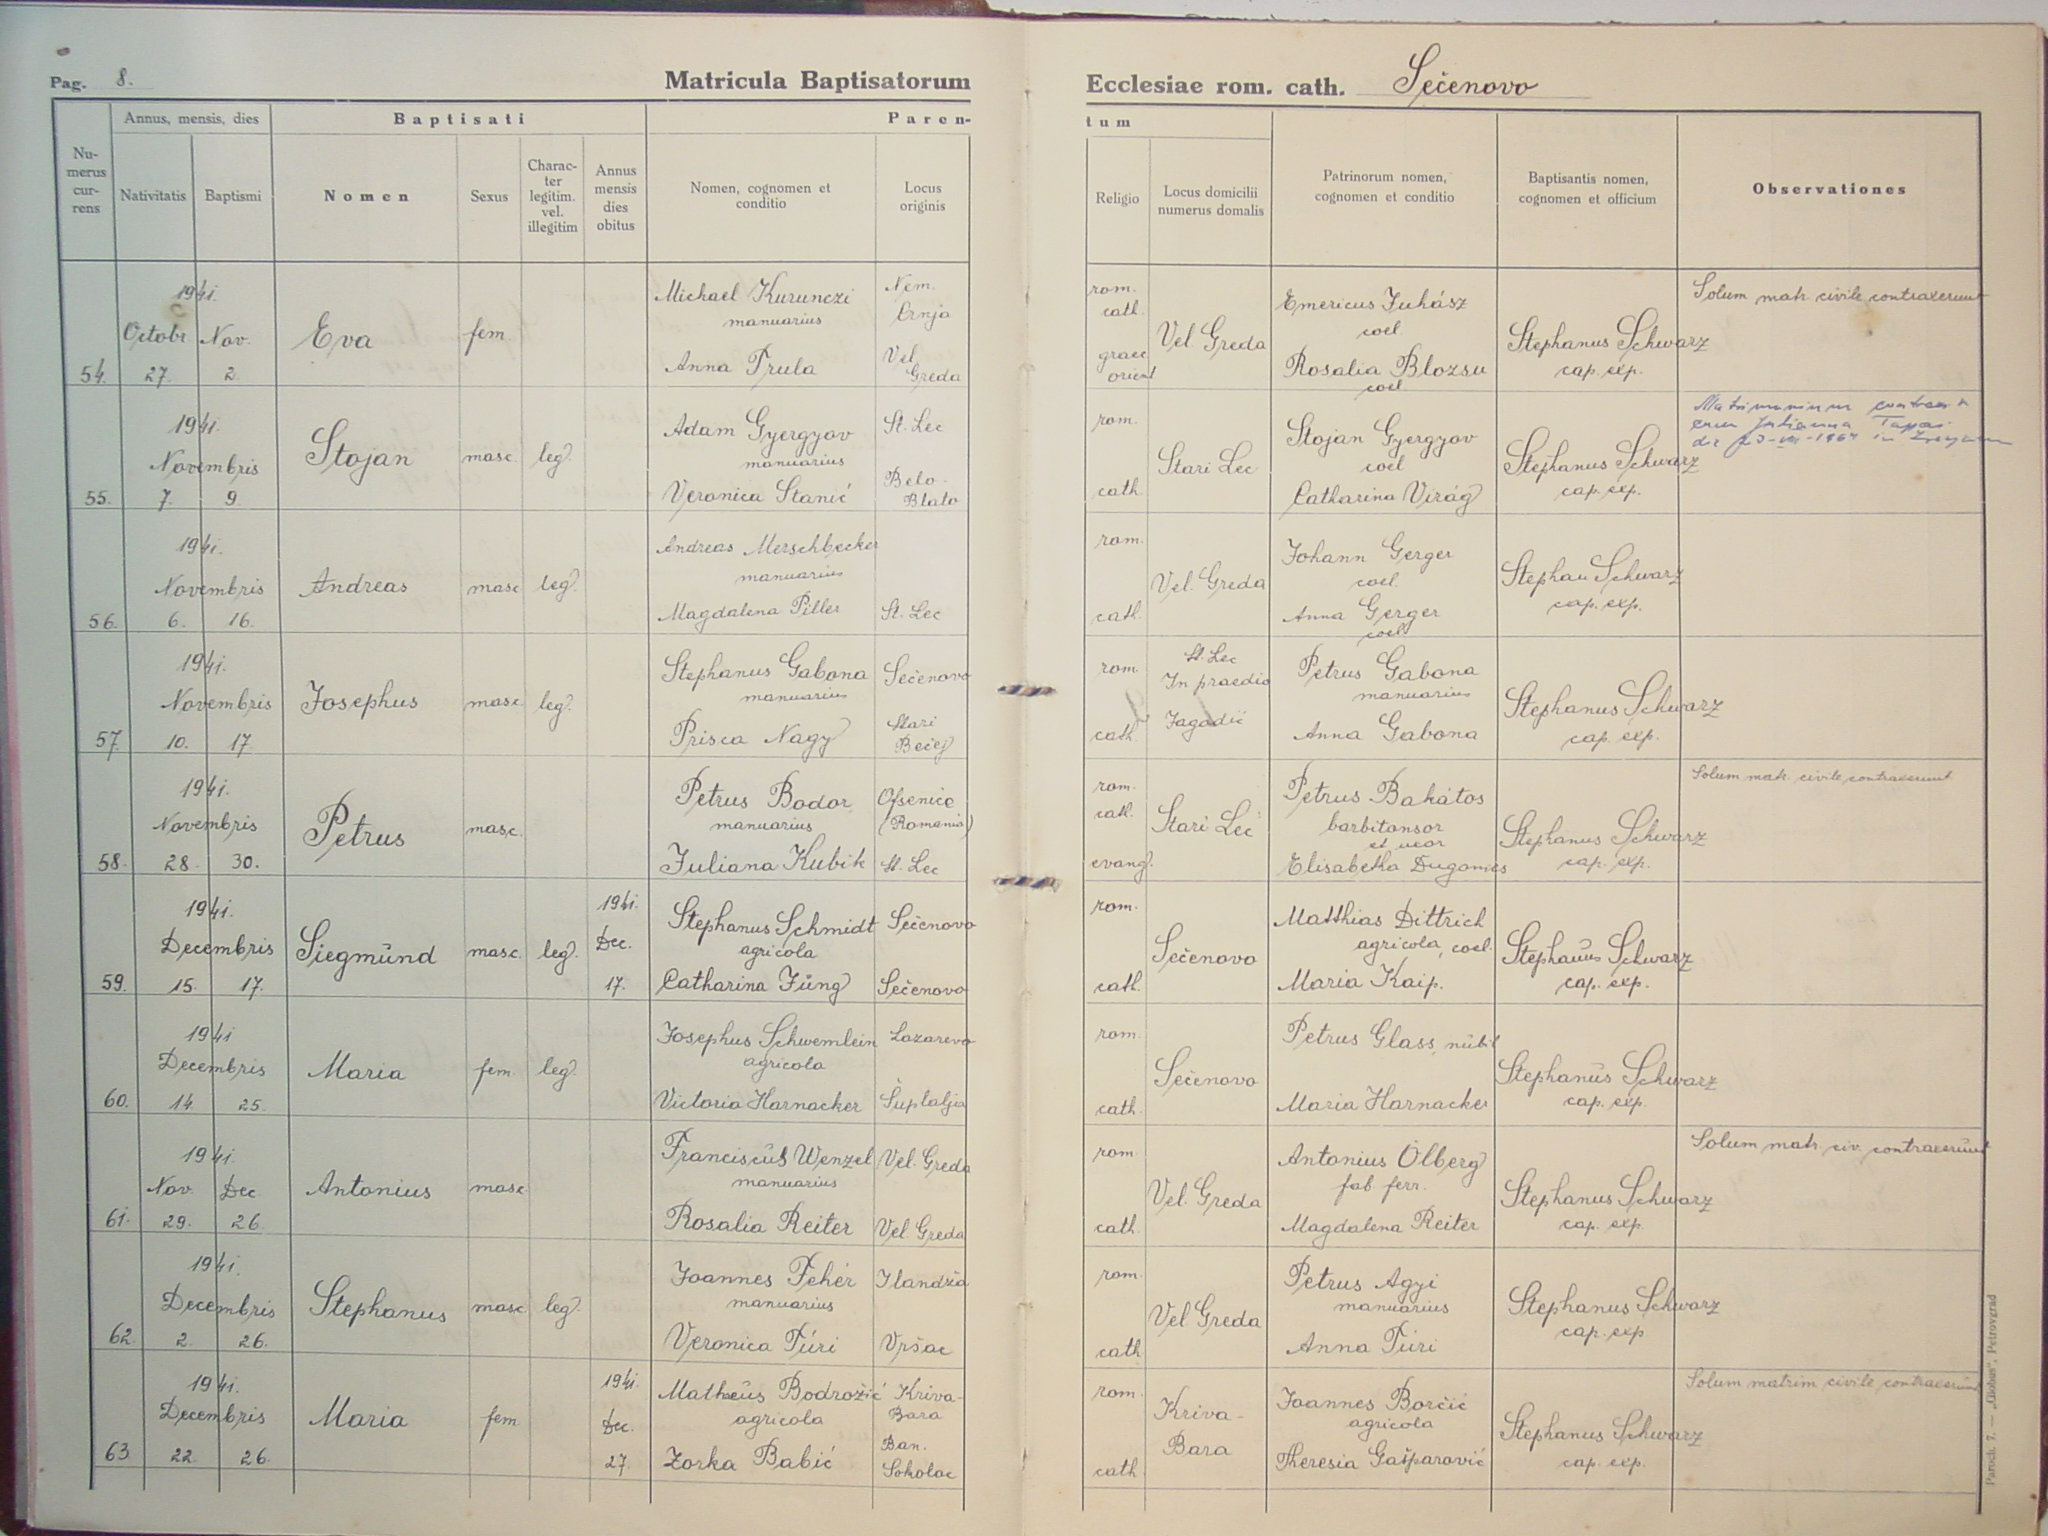 Pag. 8.
Matricula Baptisatorum
Ecclesiae rom. cath. Sečenovo
Numerus currens
Annus, mensis, dies
Nativitatis
Baptismi
Baptisati
Nomen
Sexus
Charac-
ter
legitim.
vel.
illegitim
Annus
mensis
dies
obitus
Paren-
tum
Nomen, cognomen et
conditio
Locus
originis
Religio
Locus domicilii
numerus domalis
Patrinorum nomen,
cognomen et conditio
Baptisantis nomen,
cognomen et officium
Observationes
54. 1941.
Octobr. 27. Nov. 2.
Eva fem.
Michael Kurunczi
manuarius
Nem.
Crnja
Anna Prula
Vel.
Greda
rom.
cath.
graec.
orient
Vel. Greda
Emericus Juhász
coel.
Rosalia Blozsu
coel
Stephanus Schwarz
cap. exp.
Solum matr. civile contraxerunt
55. 1941.
Novembris
7. 9.
Stojan masc. leg.
Adam Gyergyov
manuarius
St. Lec
Veronica Stanić
Belo-
Blato
rom.
cath.
Stari Lec
Stojan Gyergyov
coel
Catharina Virág
Stephanus Schwarz
cap. exp.
Matrimonium
cum Julianna
56. 1941.
Novembris
6. 16.
Andreas masc leg.
Andreas Merschbecker
manuarius
Magdalena Piller
St. Lec
rom.
cath.
Vel. Greda
Johann Gerger
coel.
Anna Gerger
coel
Stephan Schwarz
cap. exp.
57. 1941.
Novembris
10. 17.
Josephus masc. leg.
Stephanus Gabona
manuarius
Sečenovo
Prisca Nagy
Stari
Bečej
rom.
cath.
St. Lec
In praedio
Jagodić
Petrus Gabona
manuarius
Anna Gabona
Stephanus Schwarz
cap. exp.
58. 1941.
Novembris
28. 30.
Petrus masc.
Petrus Bodor
manuarius
Ofsenice
(Romania)
Juliana Kubik
St. Lec
rom.
cath.
evang.
Stari Lec
Petrus Bakátos
barbitonsor
et uxor
Elisabetha Dugonics
Stephanus Schwarz
cap. exp.
Solum matr. civile contraxerunt
59. 1941.
Decembris
15. 17.
Siegmund masc. leg.
1941.
Dec.
17.
Stephanus Schmidt
agricola
Sečenovo
Catharina Jung
Sečenovo
rom.
cath.
Sečenovo
Matthias Dittrich
agricola, coel.
Maria Kaip.
Stephanus Schwarz
cap. exp.
60. 1941
Decembris
14. 25.
Maria fem. leg.
Josephus Schwemlein
agricola
Lazarevo
Victoria Harnacker
Šuplalja
rom.
cath.
Sečenovo
Petrus Glass, nubil
Maria Harnacker
Stephanus Schwarz
cap. exp.
61. 1941.
Nov. 29. Dec. 26.
Antonius masc.
Franciscus Wenzel
manuarius
Vel. Greda
Rosalia Reiter
Vel. Greda
rom.
cath.
Vel. Greda
Antonius Ölberg
fab. ferr.
Magdalena Reiter
Stephanus Schwarz
cap. exp.
Solum matr. civ. contraxerunt
62. 1941.
Decembris
2. 26.
Stephanus masc. leg.
Joannes Fehér
manuarius
Ilandža
Veronica Túri
Vršac
rom.
cath
Vel Greda
Petrus Agyi
manuarius
Anna Túri
Stephanus Schwarz
cap. exp
63. 1941.
Decembris
22. 26.
Maria fem.
1941.
Dec.
27.
Matheus Bodrožić
agricola
Kriva-
Bara
Zorka Babić
Ban.
Sokolac
rom.
cath.
Kriva-
Bara
Joannes Borčić
agricola
Theresia Gašparović
Stephanus Schwarz
cap. exp.
Solum matrim civile contraxerunt
Paroch. 7. — „Globus", Petrovgrad